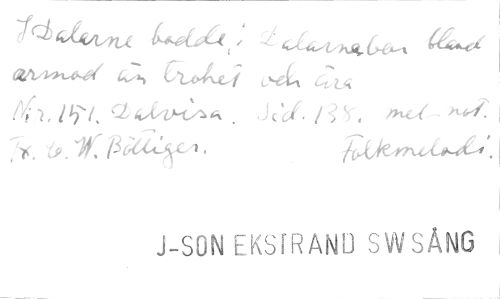 I Dalarne bodde, i Dalarna bor bland
armod än trohet och ära
Nr. 151. Dalvisa. Sid. 138. mel. not.
Tx. C. W. Böttiger. Folkmelodi.
J-SON EKSTRAND SW SÅNG